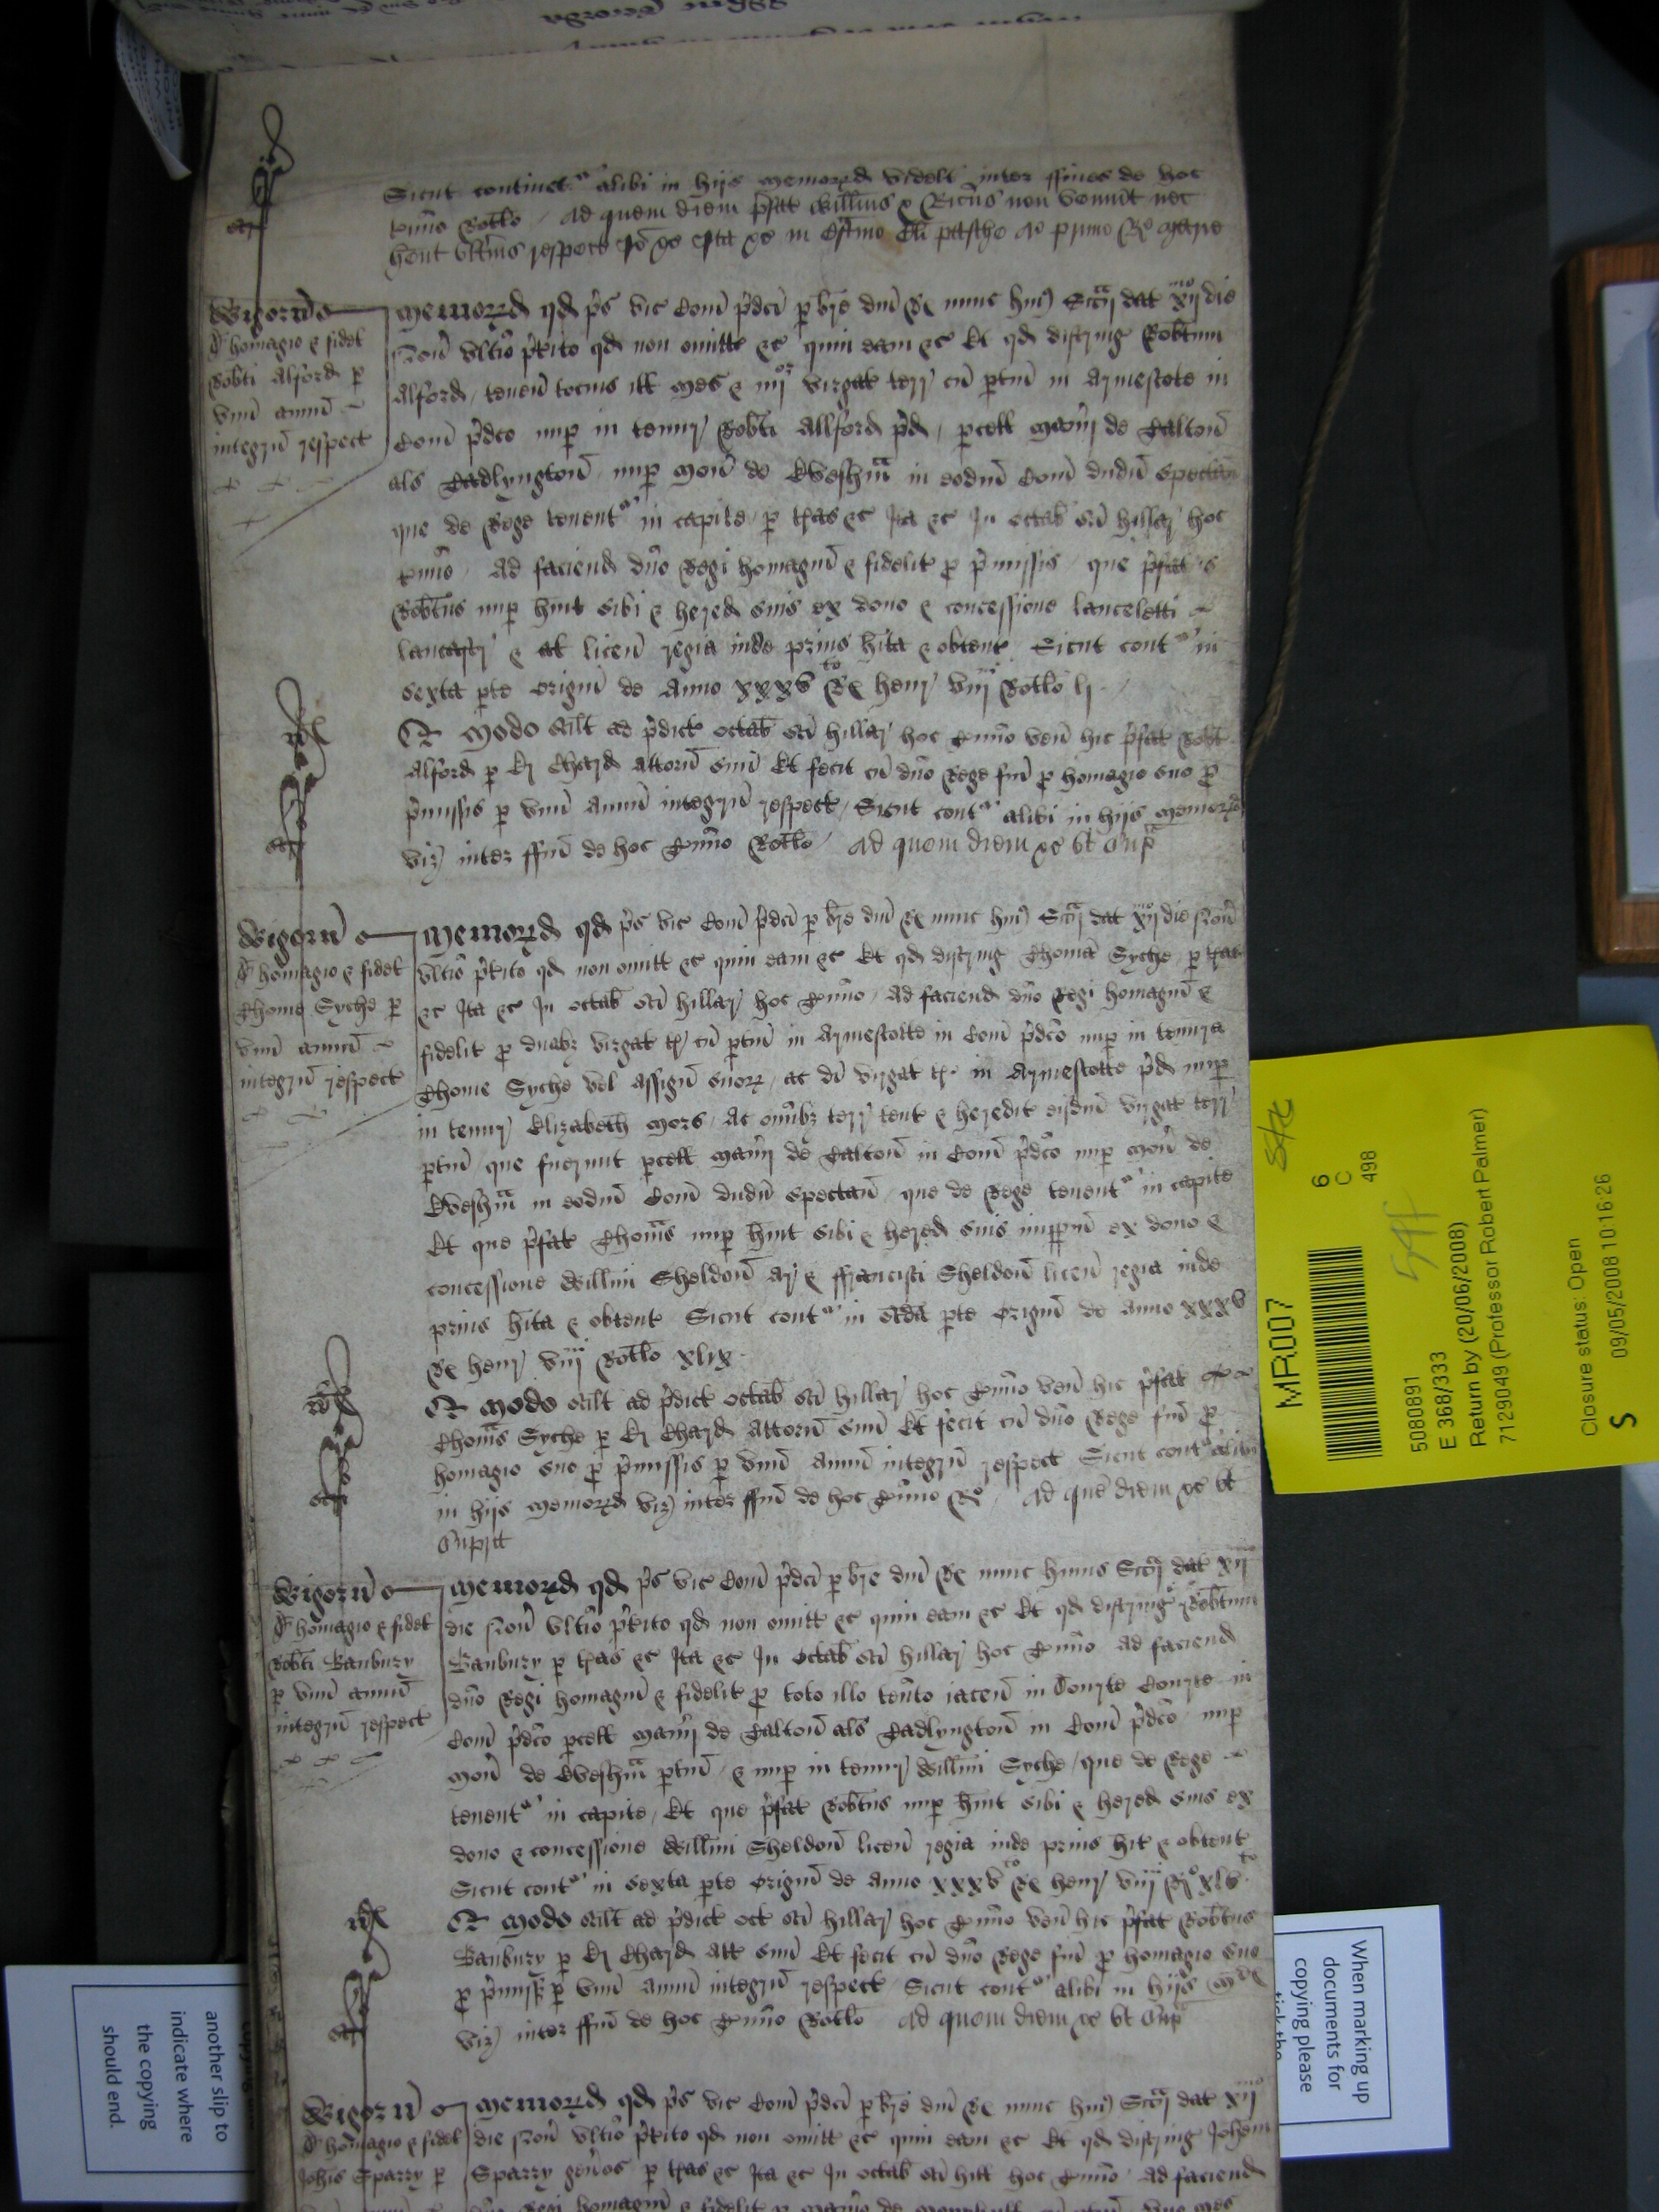 Sicut continetr alibi in hijs memorand videlt inter ffines de hoc
tmino Rotlo Ad quem diem pfat Willms & Ricus non venunt nec
hent vltius respect Io &c ita &c in Crastino Clausi pasche Ao primo Re Marie
Wigorn
P homagio & fidel
Robti Alford p
vnu annu
integru respect
Memorand qd ps vic Com pdci p bre dni Re nunc huius Sccij dat xijmo die
Nou vltio ptito qd non omitt &c quin eam &c Et qd distring Robtum
Alford tenen tocius ill mes & iiijor virgat terr cu ptin in Armescote in
Com pdco nup in tenur Robti Allford pd pcell Manij de Talton
als Tadlyngton nup Mon de Evesham in eodm Com dudu spectan
que de Rege tenentr in capite p tras &c Ita &c In octab sci Hillarij hoc
tmino Ad faciend dno Regi homagiu & fidelit p pmissis que pfat
Robtus nup huit sibi & hered suis ex dono & concessione Lanceletti
Lancastr & al licen regia inde prius hita & obtent Sicut contr in
sexta pte Origin de Anno xxxvto Re Henr viij Rotlo lj
Et modo scilt ad pdict octab sci Hillarij hoc tmino ven hic pfat Robt
Alford p Ri Chard Attorn suu Et fecit cu dno Rege fine p homagio suo p
pmissis p vnu annu integru respect Sicut contr alibi in hijs Memorand
viz inter ffin de hoc tmino Rotlo Ad quem diem &c vt supa
Wigorn
P homagio & fidel
Thome Syche p
vnu annu
integru respect
Memorand qd ps vic Com pdci p bre dni Re nunc huius Sccij dat xijmo die Nou
vltio ptito qd non omitt &c quin eam &c Et qd distring Thoma Syche p tras
&c Ita &c In octab sci Hillarij hoc tmino Ad faciend dno Regi homagiu &
fidelit p duabz virgat tr cu ptin in Armescotte in Com pdco nup in tenura
Thome Syche vel assign suorz ac di virgat tr in Armescotte pd nup
in tenur Elizabeth Mors Ac omibz terr tent & heredit eisdm virgat terr
ptin que fuerunt pcell Manij de Talton in Com pdco nup Mon de
Evesham in eodm Com dudu spectan que de Rege tenentr in capite
Et que pfat Thomas nup huit sibi & hered suis imppm ex dono &
concessione Willmi Sheldon Ar & ffrancisci Sheldon licen regia inde
prius hita & obtent Sicut contr in scda pte Origin de anno xxxv
Re Henr viij Rotlo xlix
Et modo scilt ad pdict octab sci Hillarij hoc tmino ven hic pfat
Thomas Syche p Ri Chard Attorn suu Et fecit cu dno Rege fine p
homagio suo p pmissis p vnu annu integru respect Sicut contr alibi
in hijs Memorand viz inter ffin de hoc tmino Ro Ad que diem &c vt
supra
Wigorn
P homagio & fidel
Robti Banbury
p vnu annu
integru respect
Memorand qd ps vic Com pdci p bre dni Re nunc huius Sccij dat xijmo
die Nou vltio ptito qd non omitt &c quin eam &c Et qd distring Robtum
Banbury p tras &c Ita &c In octab sci Hillarij hoc tmino Ad faciend
dno Regi homagiu & fidelit p toto illo tento iacen in Courte in
Com pdco pcell Manij de Talton als Tadlyngton in Com pdco nup
Mon de Evesham ptin & nup in tenur Willmi Syche que de Rege
tenentr in capite Et que pfat Robtus nup huit sibi & hered suis ex
dono & concessione Willmi Sheldon licen regia inde prius hit & obtent
Sicut contr in sexta pte Origin de anno xxxvto Re Henr viij Ro xlvto
Et modo scilt ad pdict oct sci Hillarij hoc tmino ven hic pfat Robtus
Banbury p Ri Chard Att suu Et fecit cu dno Rege fine p homagio suo
p pmiss p vnu annu integru respect Sicut contr alibi in hijs
viz inter ffin de hoc tmino Rotlo Ad quem diem &c vt sup
Wigorn
P homagio & fidel
Johis Sparry p
Memorand qd ps vic Com pdci p bre dni Re nunc huius Sccij dat xijmo
die Nou vltio ptito qd non omitt &c quin eam &c Et qd distring Johem
Sparry genos p tras &c Ita &c In octab sci Hill hoc tmino Ad faciend
MR007
6
C
498
5080891
E 368/333
Return by (20/06/2008)
7129049 (Professor Robert Palmer)
Closure status: Open
S 09/05/2008 10:16:26
When marking up
documents for
copying please
tick the
another slip to
indicate where
the copying
should end.